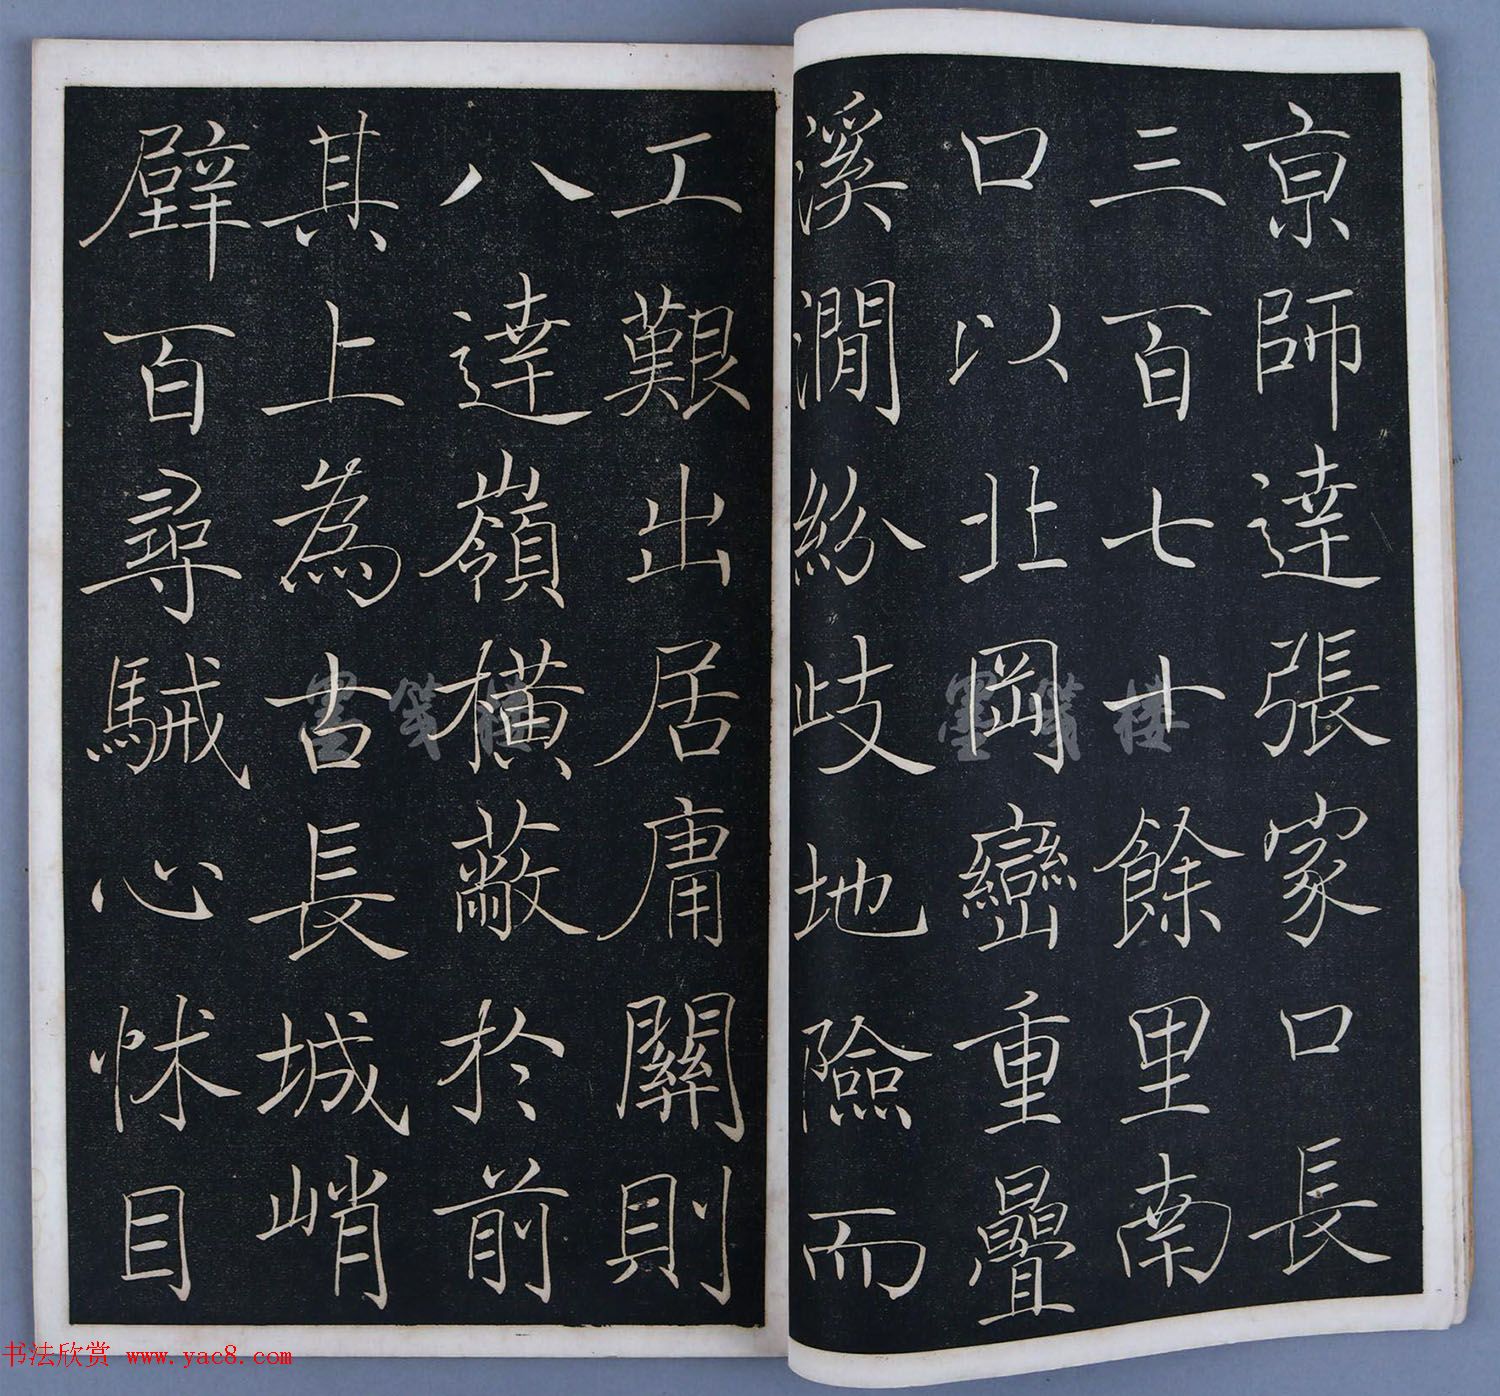 京師達張家口長
三百七十餘里南
口以北岡巒重疊
溪澗紛歧地險而
工艱出居庸關則
八達嶺橫蔽於前
其上為古長城峭
壁百尋駴心怵目
墨笺楼
墨笺楼
书法欣赏 www.yac8.com